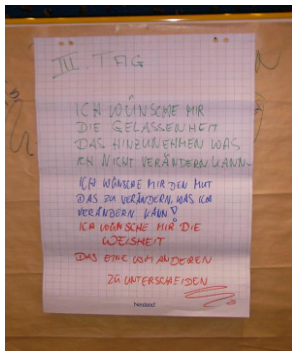 III. TAG
ICH WÜNSCHE MIR
DIE GELASSENHEIT
DAS HINZUNEHMEN WAS
ICH NICHT VERÄNDERN KANN.
ICH WÜNSCHE MIR DEN MUT
DAS ZU VERÄNDERN, WAS ICH
VERÄNDERN KANN!
ICH WÜNSCHE MIR DIE
WEISHEIT
DAS EINE VOM ANDEREN
ZU UNTERSCHEIDEN
Neuland